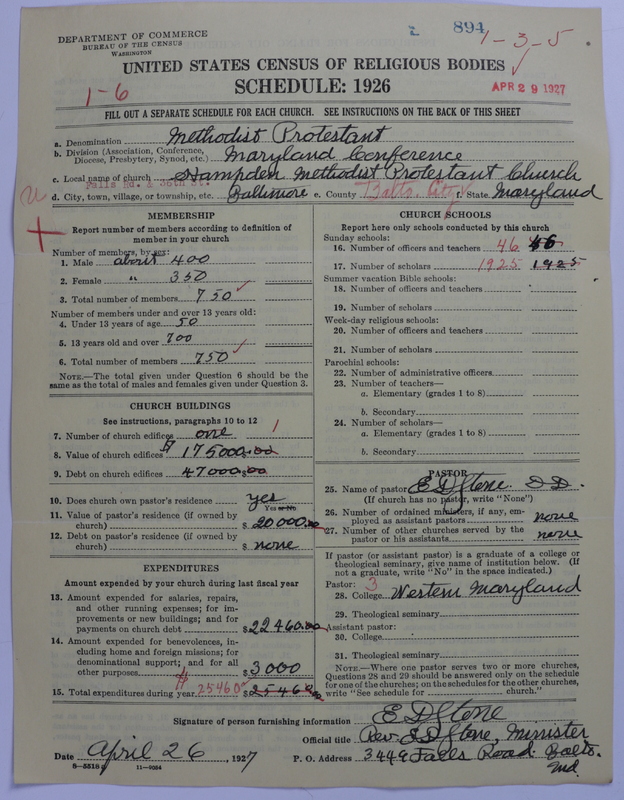 DEPARTMENT OF COMMERCE
BUREAU OF THE CENSUS
WASHINGTON
894
1-3-5
UNITED STATES CENSUS OF RELIGIOUS BODIES
SCHEDULE: 1926
1-6
APR 29 1927
FILL OUT A SEPARATE SCHEDULE FOR EACH CHURCH. SEE INSTRUCTIONS ON THE BACK OF THIS SHEET
a. Denomination Methodist Protestant
b. Division (Association, Conference, Diocese, Presbytery, Synod, etc.) Maryland Conference
c. Local name of church Hampden Methodist Protestant Church
Falls Rd. & 36th St.
d. City, town, village, or township, etc. Baltimore e. County Balto. City f. State Maryland
MEMBERSHIP
Report number of members according to definition of
member in your church
Number of members, by sex:
1. Male about 400
2. Female " 350
3. Total number of members 750
Number of members under and over 13 years old:
4. Under 13 years of age 50
5. 13 years old and over 700
6. Total number of members 750
NOTE.—The total given under Question 6 should be the
same as the total of males and females given under Question 3.
CHURCH BUILDINGS
See instructions, paragraphs 10 to 12
7. Number of church edifices one 1
8. Value of church edifices $175000.00
9. Debt on church edifices 47000.00
10. Does church own pastor's residence yes
Yes or No
11. Value of pastor's residence (if owned by
church) $20000.00
12. Debt on pastor's residence (if owned by
church) $ none
EXPENDITURES
Amount expended by your church during last fiscal year
13. Amount expended for salaries, repairs,
and other running expenses; for im-
provements or new buildings; and for
payments on church debt $22460.00
14. Amount expended for benevolences, in-
cluding home and foreign missions; for
denominational support; and for all
other purposes $3000
15. Total expenditures during year $25460 $25460
CHURCH SCHOOLS
Report here only schools conducted by this church
Sunday schools:
16. Number of officers and teachers 46 46
17. Number of scholars 1925 1925
Summer vacation Bible schools:
18. Number of officers and teachers
19. Number of scholars
Week-day religious schools:
20. Number of officers and teachers
21. Number of scholars
Parochial schools:
22. Number of administrative officers
23. Number of teachers—
a. Elementary (grades 1 to 8)
b. Secondary
24. Number of scholars—
a. Elementary (grades 1 to 8)
b. Secondary
PASTOR
25. Name of pastor E D Stone. D D.
(If church has no pastor, write "None")
26. Number of ordained ministers, if any, em-
ployed as assistant pastors none
27. Number of other churches served by the
pastor or his assistants none
If pastor (or assistant pastor) is a graduate of a college or
theological seminary, give name of institution below. (If
not a graduate, write "No" in the space indicated.)
Pastor: 3
28. College Western Maryland
29. Theological seminary
Assistant pastor:
30. College
31. Theological seminary
NOTE.—Where one pastor serves two or more churches,
Questions 28 and 29 should be answered only on the schedule
for one of the churches; on the schedules for the other churches,
write "See schedule for church."
Signature of person furnishing information E D Stone
Official title Rev. E D Stone, Minister
Date April 26, 1927 P. O. Address 3449 Falls Road. Balto.
Md.
8-5518 11-9084